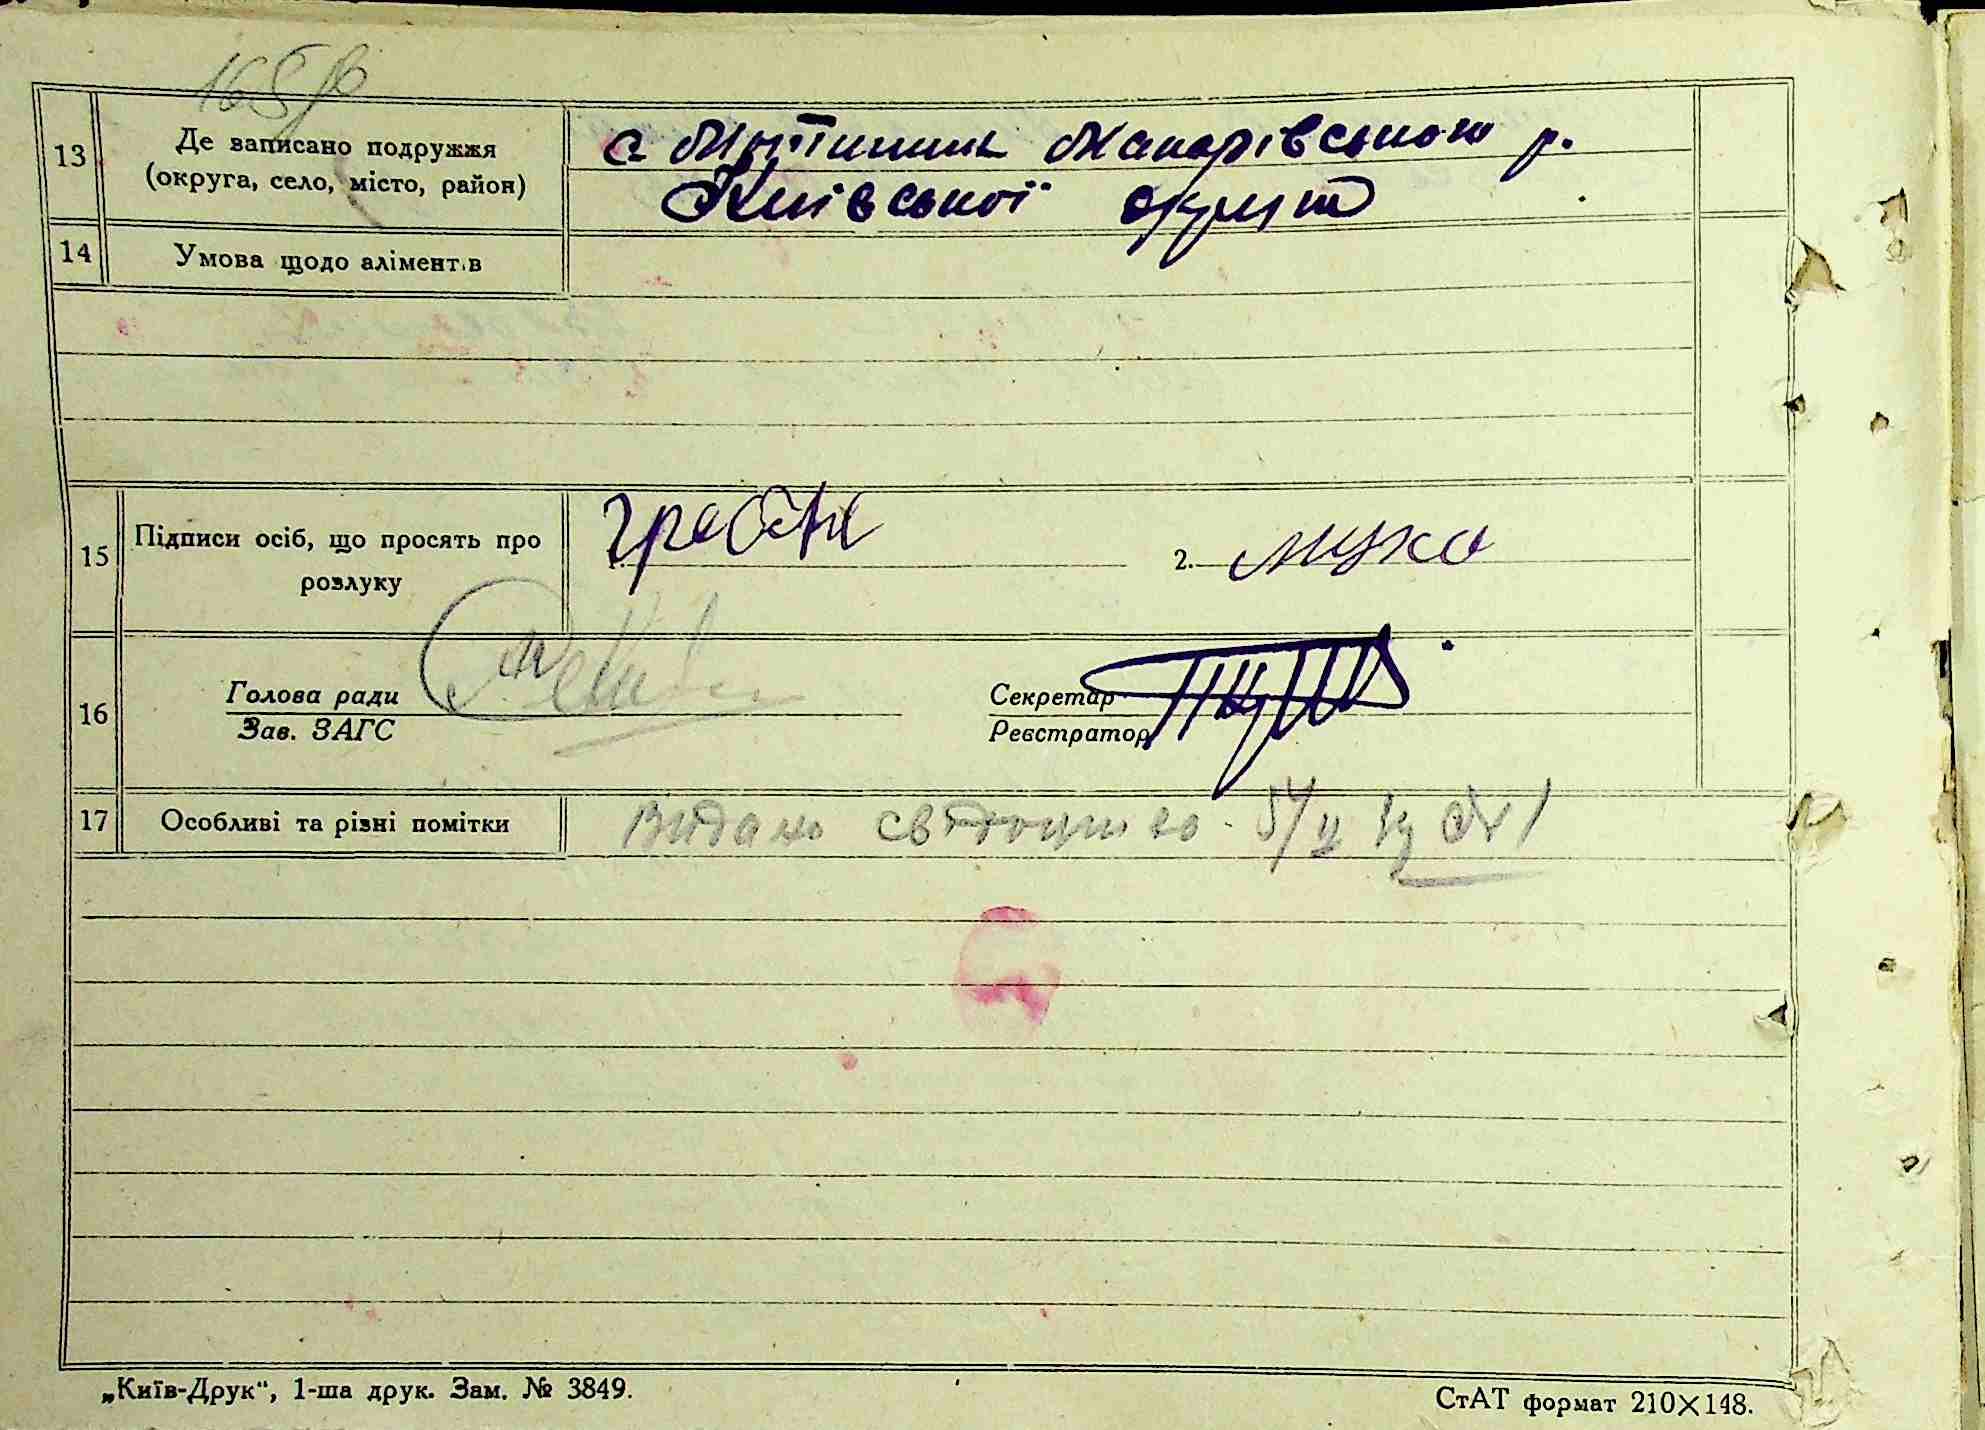 13 Де записано подружжя
(округа, село, місто, район)
с Мотижин Макарівського р.
Київської округи
14 Умова щодо аліментів
15 Підписи осіб, що просять про
розлуку
1. 2.
16 Голова ради
Зав. ЗАГС
Секретар
Реєстратор
17 Особливі та різні помітки
Видано свідоцтво
„Київ-Друк“, 1-ша друк. Зам. № 3849.
СтАТ формат 210×148.